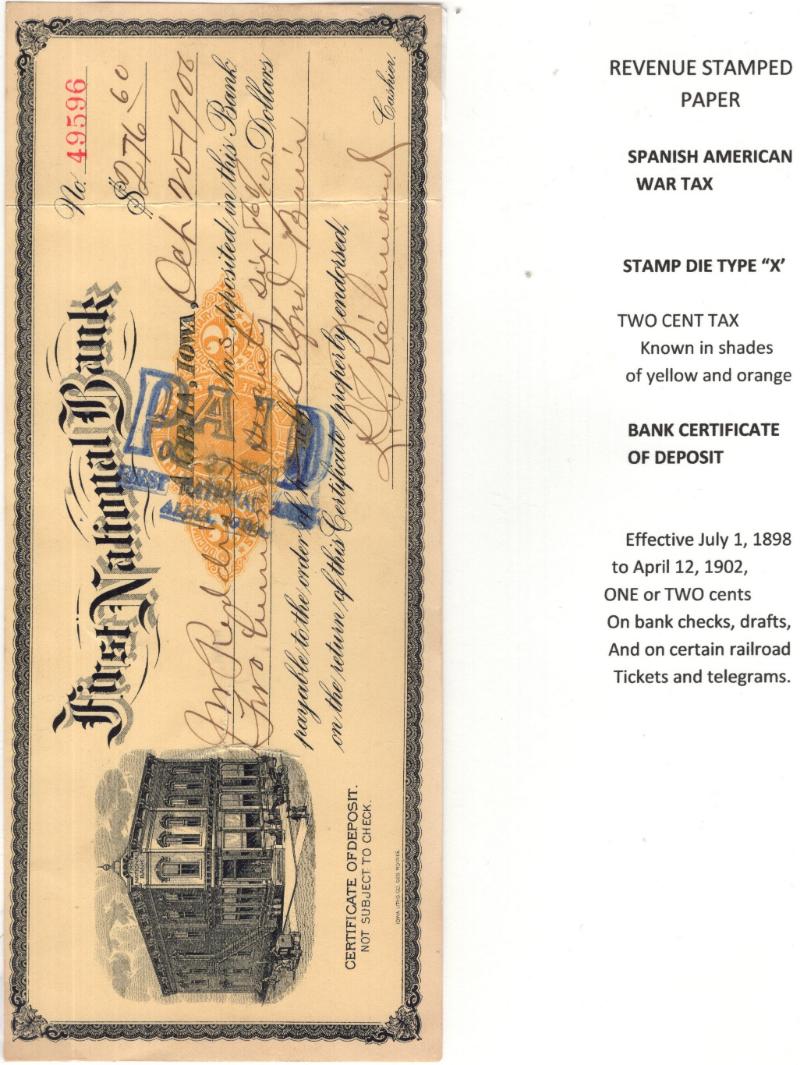 First National Bank
No. 49596
$276.60
ALBIA, IOWA, Oct 20-1900
has deposited in this Bank
Two Hundred Seventy six &60/100 Dollars
payable to the order of
on the return of this Certificate properly endorsed,
Cashier.
PAID
FIRST NATIONAL
ALBIA, IOWA
CERTIFICATE OF DEPOSIT.
NOT SUBJECT TO CHECK.
REVENUE STAMPED
PAPER
SPANISH AMERICAN
WAR TAX
STAMP DIE TYPE “X’
TWO CENT TAX
Known in shades
of yellow and orange
BANK CERTIFICATE
OF DEPOSIT
Effective July 1, 1898
to April 12, 1902,
ONE or TWO cents
On bank checks, drafts,
And on certain railroad
Tickets and telegrams.